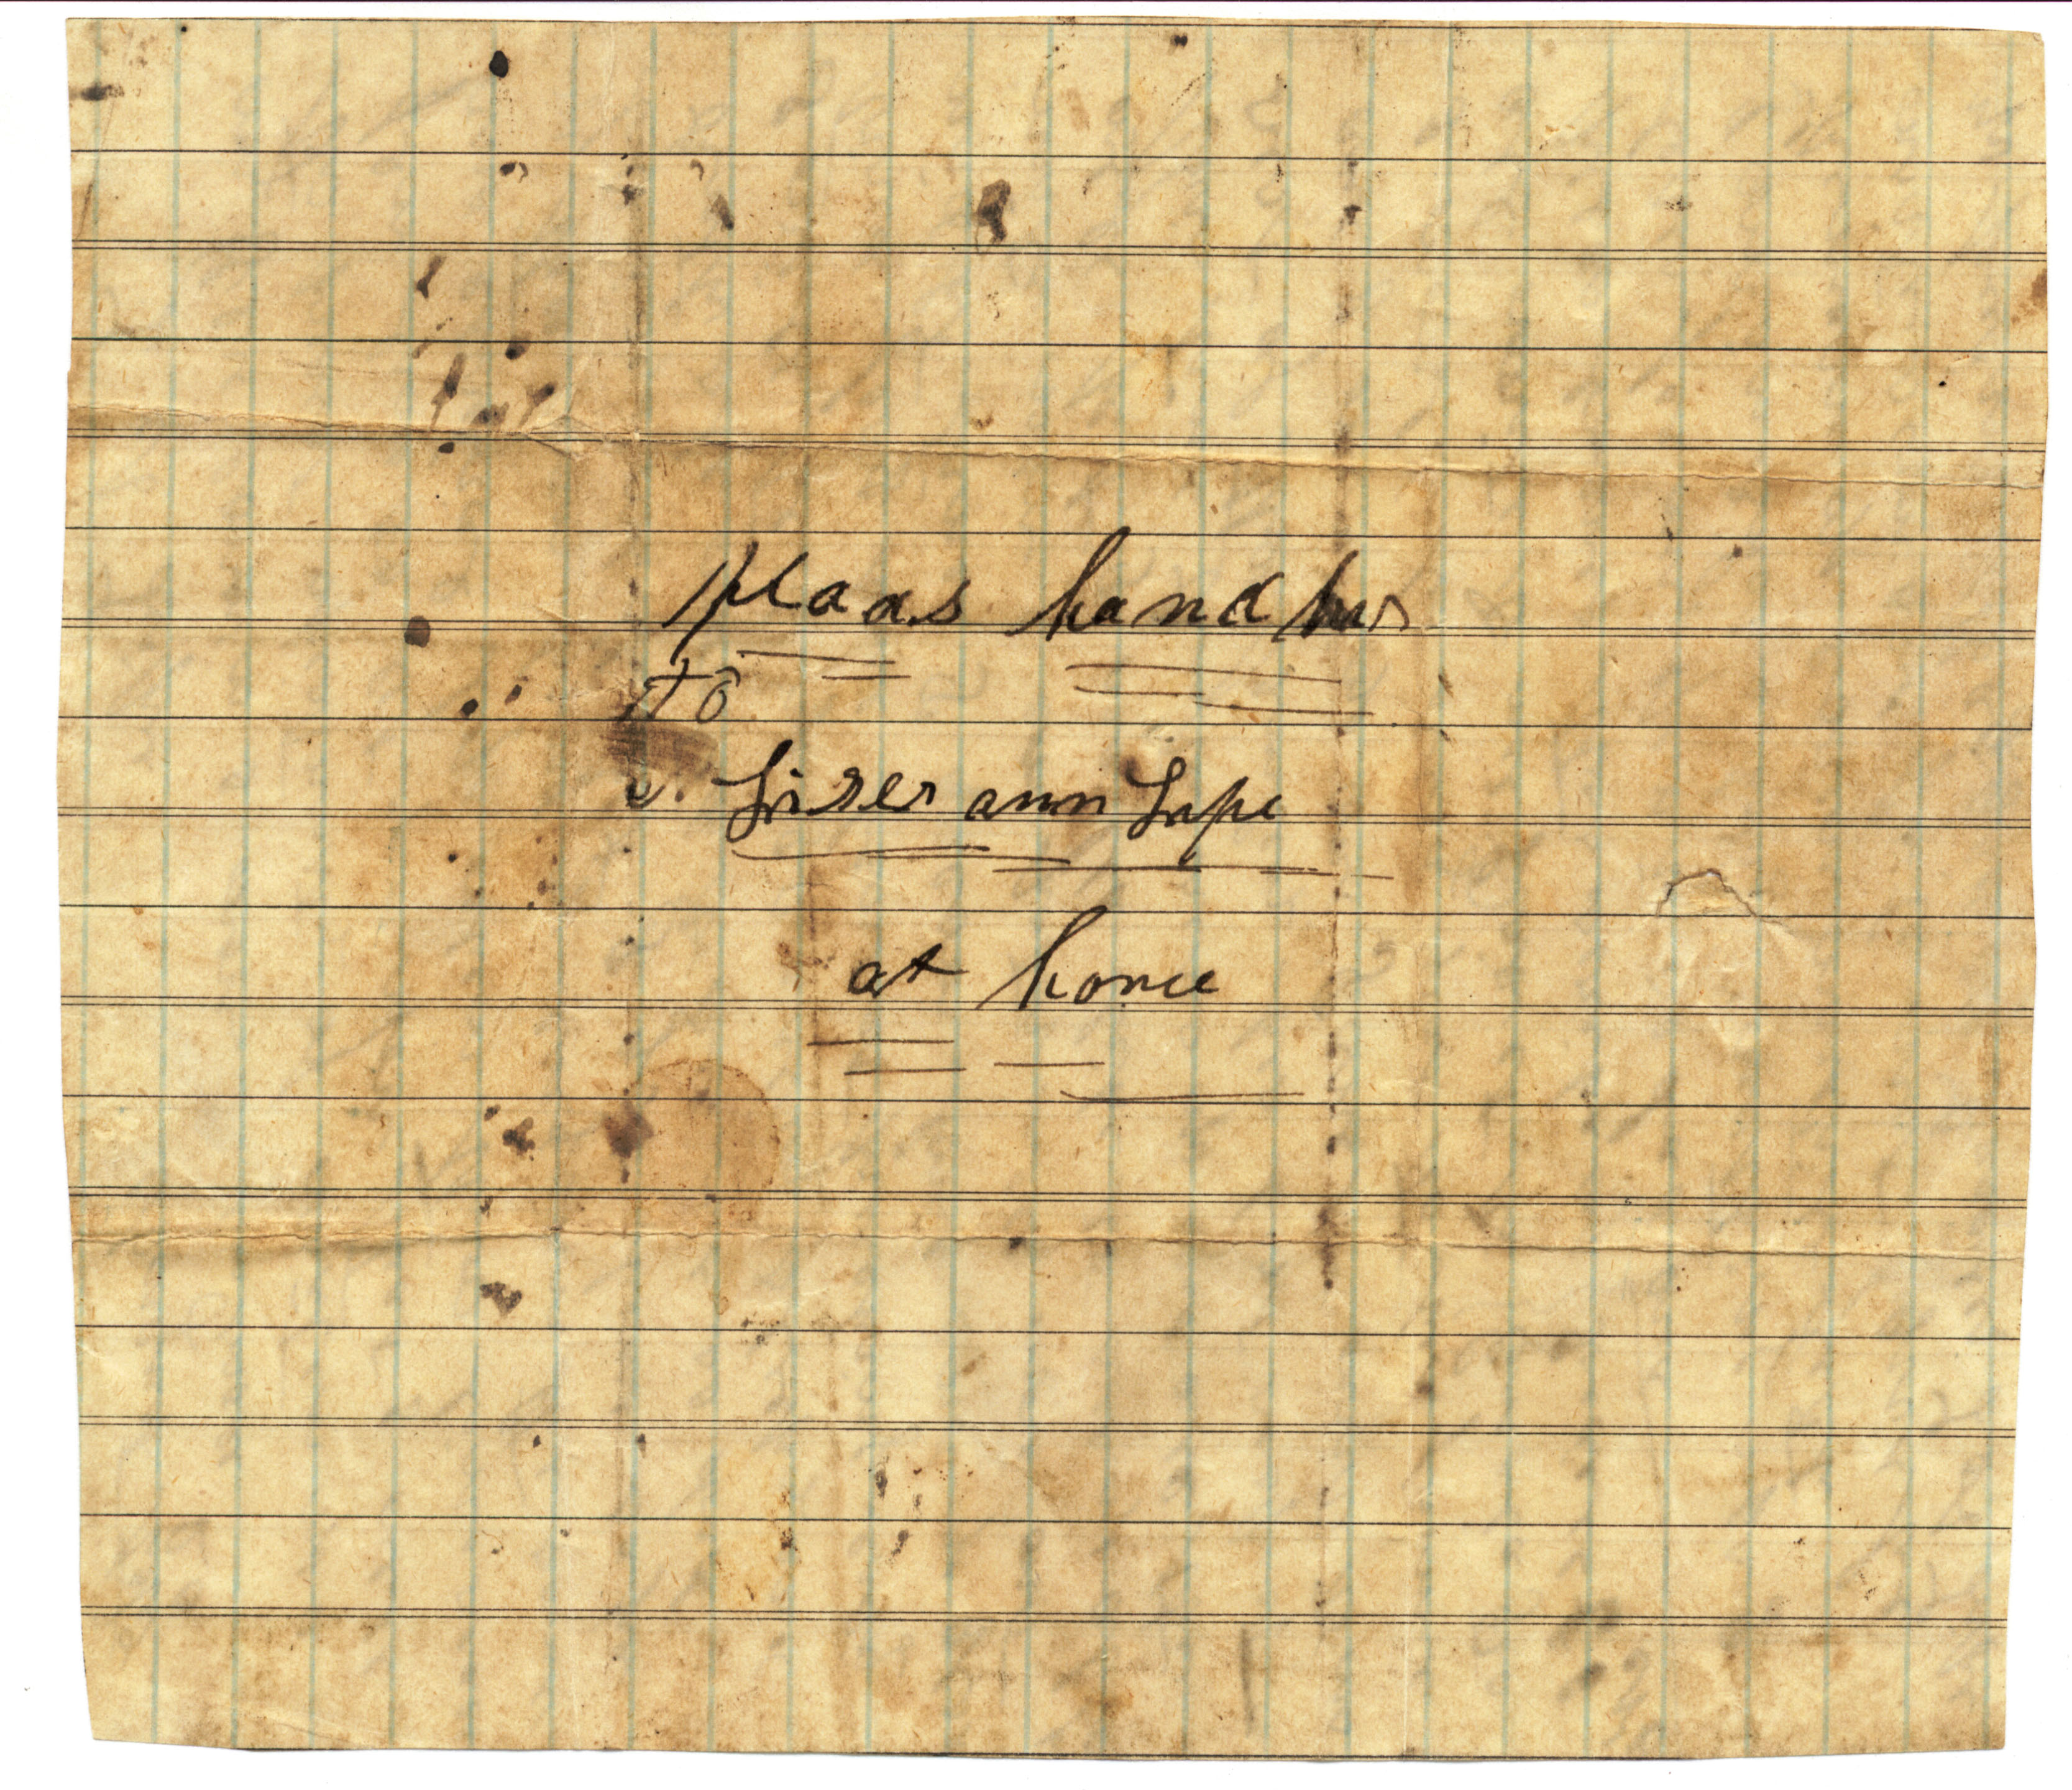 plaas hand
to
Liser ann Lape
at home